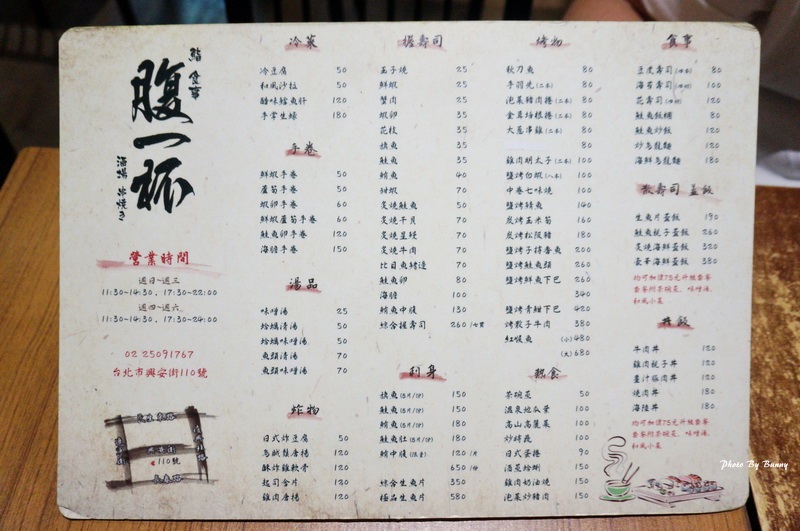 鮨 食事
腹一杯
酒場 串焼き
營業時間
週日~週三
11:30~14:30 , 17:30~22:00
週四~週六
11:30~14:30 , 17:30~24:00
02 25091767
台北市興安街110號
110號
冷菜
冷豆腐 50
和風沙拉 50
醋味鱈魚肝 120
手掌生蠔 180
手卷
鮮蝦手卷 50
蘆筍手卷 50
蝦卵手卷 60
鮮蝦蘆筍手卷 60
鮭魚卵手卷 120
海膽手卷 150
湯品
味噌湯 25
蛤蠣清湯 50
蛤蠣味噌湯 50
魚類清湯 70
魚類味噌湯 70
炸物
日式炸豆腐 50
烏賊鬚唐揚 120
酥炸雞軟骨 120
起司合片 120
雞肉唐揚 120
握壽司
玉子燒 25
鮮蝦 25
蟹肉 25
蝦卵 35
花枝 35
旗魚 35
鮭魚 35
鮪魚 40
甜蝦 70
炙燒鮭魚 50
炙燒干貝 70
炙燒星鰻 70
炙燒牛肉 70
比目魚鰭邊 70
鮭魚卵 80
海膽 100
鮪魚中腹 130
綜合握壽司 260 /七貫
刺身
旗魚(5片/份) 150
鮭魚(5片/份) 150
鮪魚(5片/份) 180
鮭魚肚(5片/份) 180
鮪中腹 120 /片
650 /份
綜合生魚片 350
極品生魚片 580
烤物
秋刀魚 80
手羽先(二本) 80
泡菜豬肉捲(二本) 80
金菇培根捲(二本) 80
大蔥串雞(二本) 80
80
雞肉明太子(二本) 100
鹽烤白蝦(八本) 100
中卷七味燒 100
鹽烤雞魚 140
炭烤玉米筍 160
炭烤松阪豬 180
鹽烤子持香魚 200
鹽烤鮭魚頭 260
鹽烤鮮魚下巴 260
340
鹽烤青魽下巴 420
烤骰子牛肉 380
紅喉魚 (小)480
(大)680
熟食
茶碗蒸 50
溫泉地瓜葉 100
高山高麗菜 100
炒時蔬 100
日式蛋捲 90
酒蒸蛤蜊 150
雞肉奶油燒 150
泡菜炒豬肉 150
食事
豆皮壽司(四個) 80
海苔壽司(四個) 100
花壽司(四個) 120
鮭魚飯糰 80
鮭魚炒飯 120
炒烏龍麵 120
海鮮烏龍麵 180
散壽司 蓋飯
生魚片蓋飯 190
鮭魚親子蓋飯 260
炙燒海鮮蓋飯 320
豪華海鮮蓋飯 380
均可加價75元升級套餐
套餐附茶碗蒸、味噌湯、
和風小菜
丼飯
牛肉丼 120
雞肉親子丼 120
薑汁豬肉丼 120
燒肉丼 180
海陸丼 180
均可加價75元升級套餐
套餐附茶碗蒸、味噌湯、
和風小菜
Photo By Banny